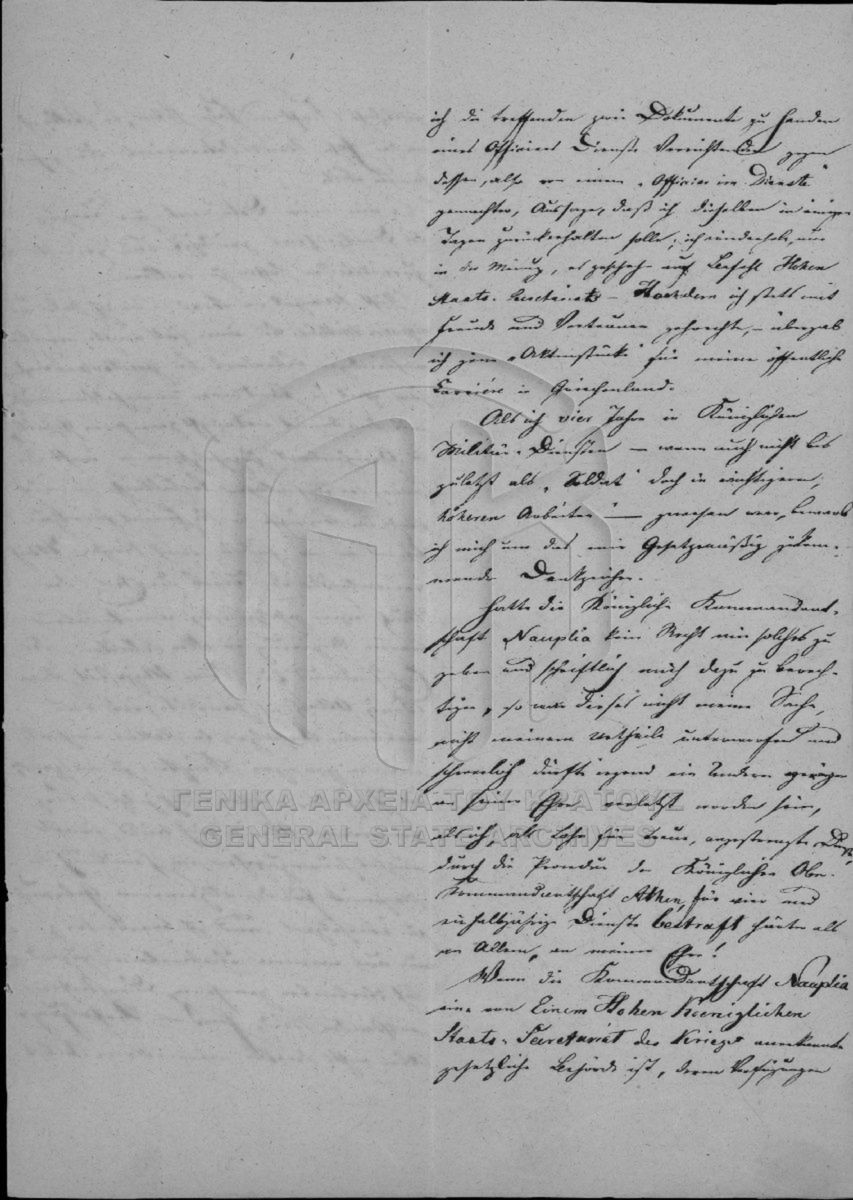 ich die treffenden zwei Dokumente zu Handen
eines Officiers Dienste Verrichtenden gegen
dessen, also von einem „Officier im Dienste“
gemachter, Aussage, daß ich dieselben in einigen
Tagen zurückerhalten solle; ich wiederhole, nur
in der Meinung, es geschehe auf Befehl Hohen
Staats-Secretariats – Hochdem ich stets mit
Freude und Vertrauen gehorchte, – übergab
ich jene „Aktenstücke“ für meine öffentliche
Carriére in Griechenland.
Als ich vier Jahre in Königlichen
Militär-Diensten — wenn auch nicht bis
zuletzt als „Soldat“ doch in wichtigeren,
höheren Arbeiten — gewesen war, bewarb
ich mich um das mir Gesetzmäßig zukom-
mende Denkzeichen.
Hatte die Königliche Kommandant-
schaft Nauplia kein Recht mir solches zu
geben und schriftlich mich dazu zu berech-
tigen, so war dieses nicht meine Sache,
nicht meinem Urtheile unterworfen und
schwerlich dürfte irgend ein Andern
an seiner Ehre verletzt worden sein,
als ich, als Lohn für treue, angestrengte Dienste,
durch die Procedur der Königlichen Ober-
Kommandantschaft Athen, für vier und
ein halbjährige Dienste bestraft härter als
an Allem, an meiner Ehre!
Wenn die Kommandantschaft Nauplia
eine von Einem Hohen Koeniglichen
Staats-Secretariat des Kriegs anerkannte
gesetzliche Behörde ist, deren Verfügungen
ΓΕΝΙΚΑ ΑΡΧΕΙΑ ΤΟΥ ΚΡΑΤΟΥΣ
GENERAL STATE ARCHIVES